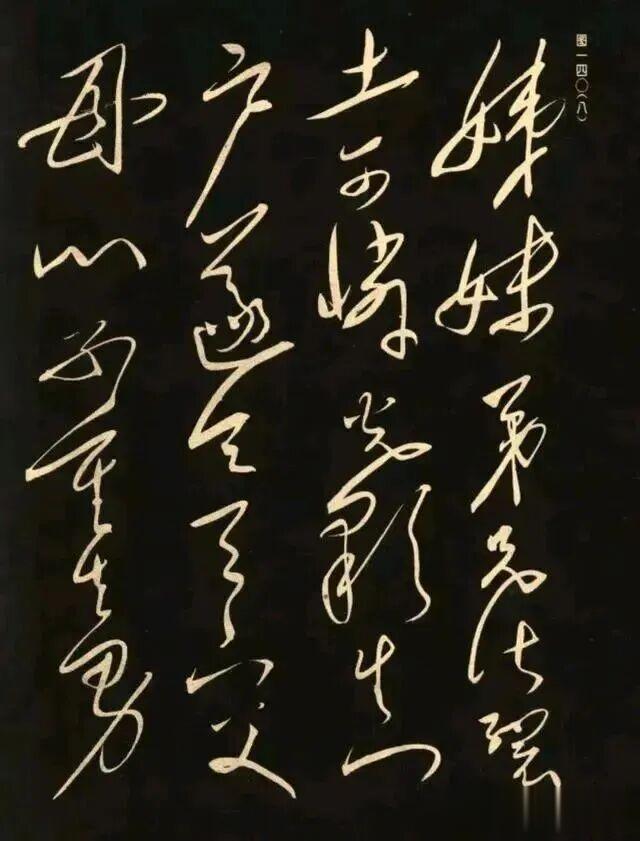 图一四〇(八)
姊妹弟兄皆列
土可怜光彩生门
户遂令天下父
母心不重生男